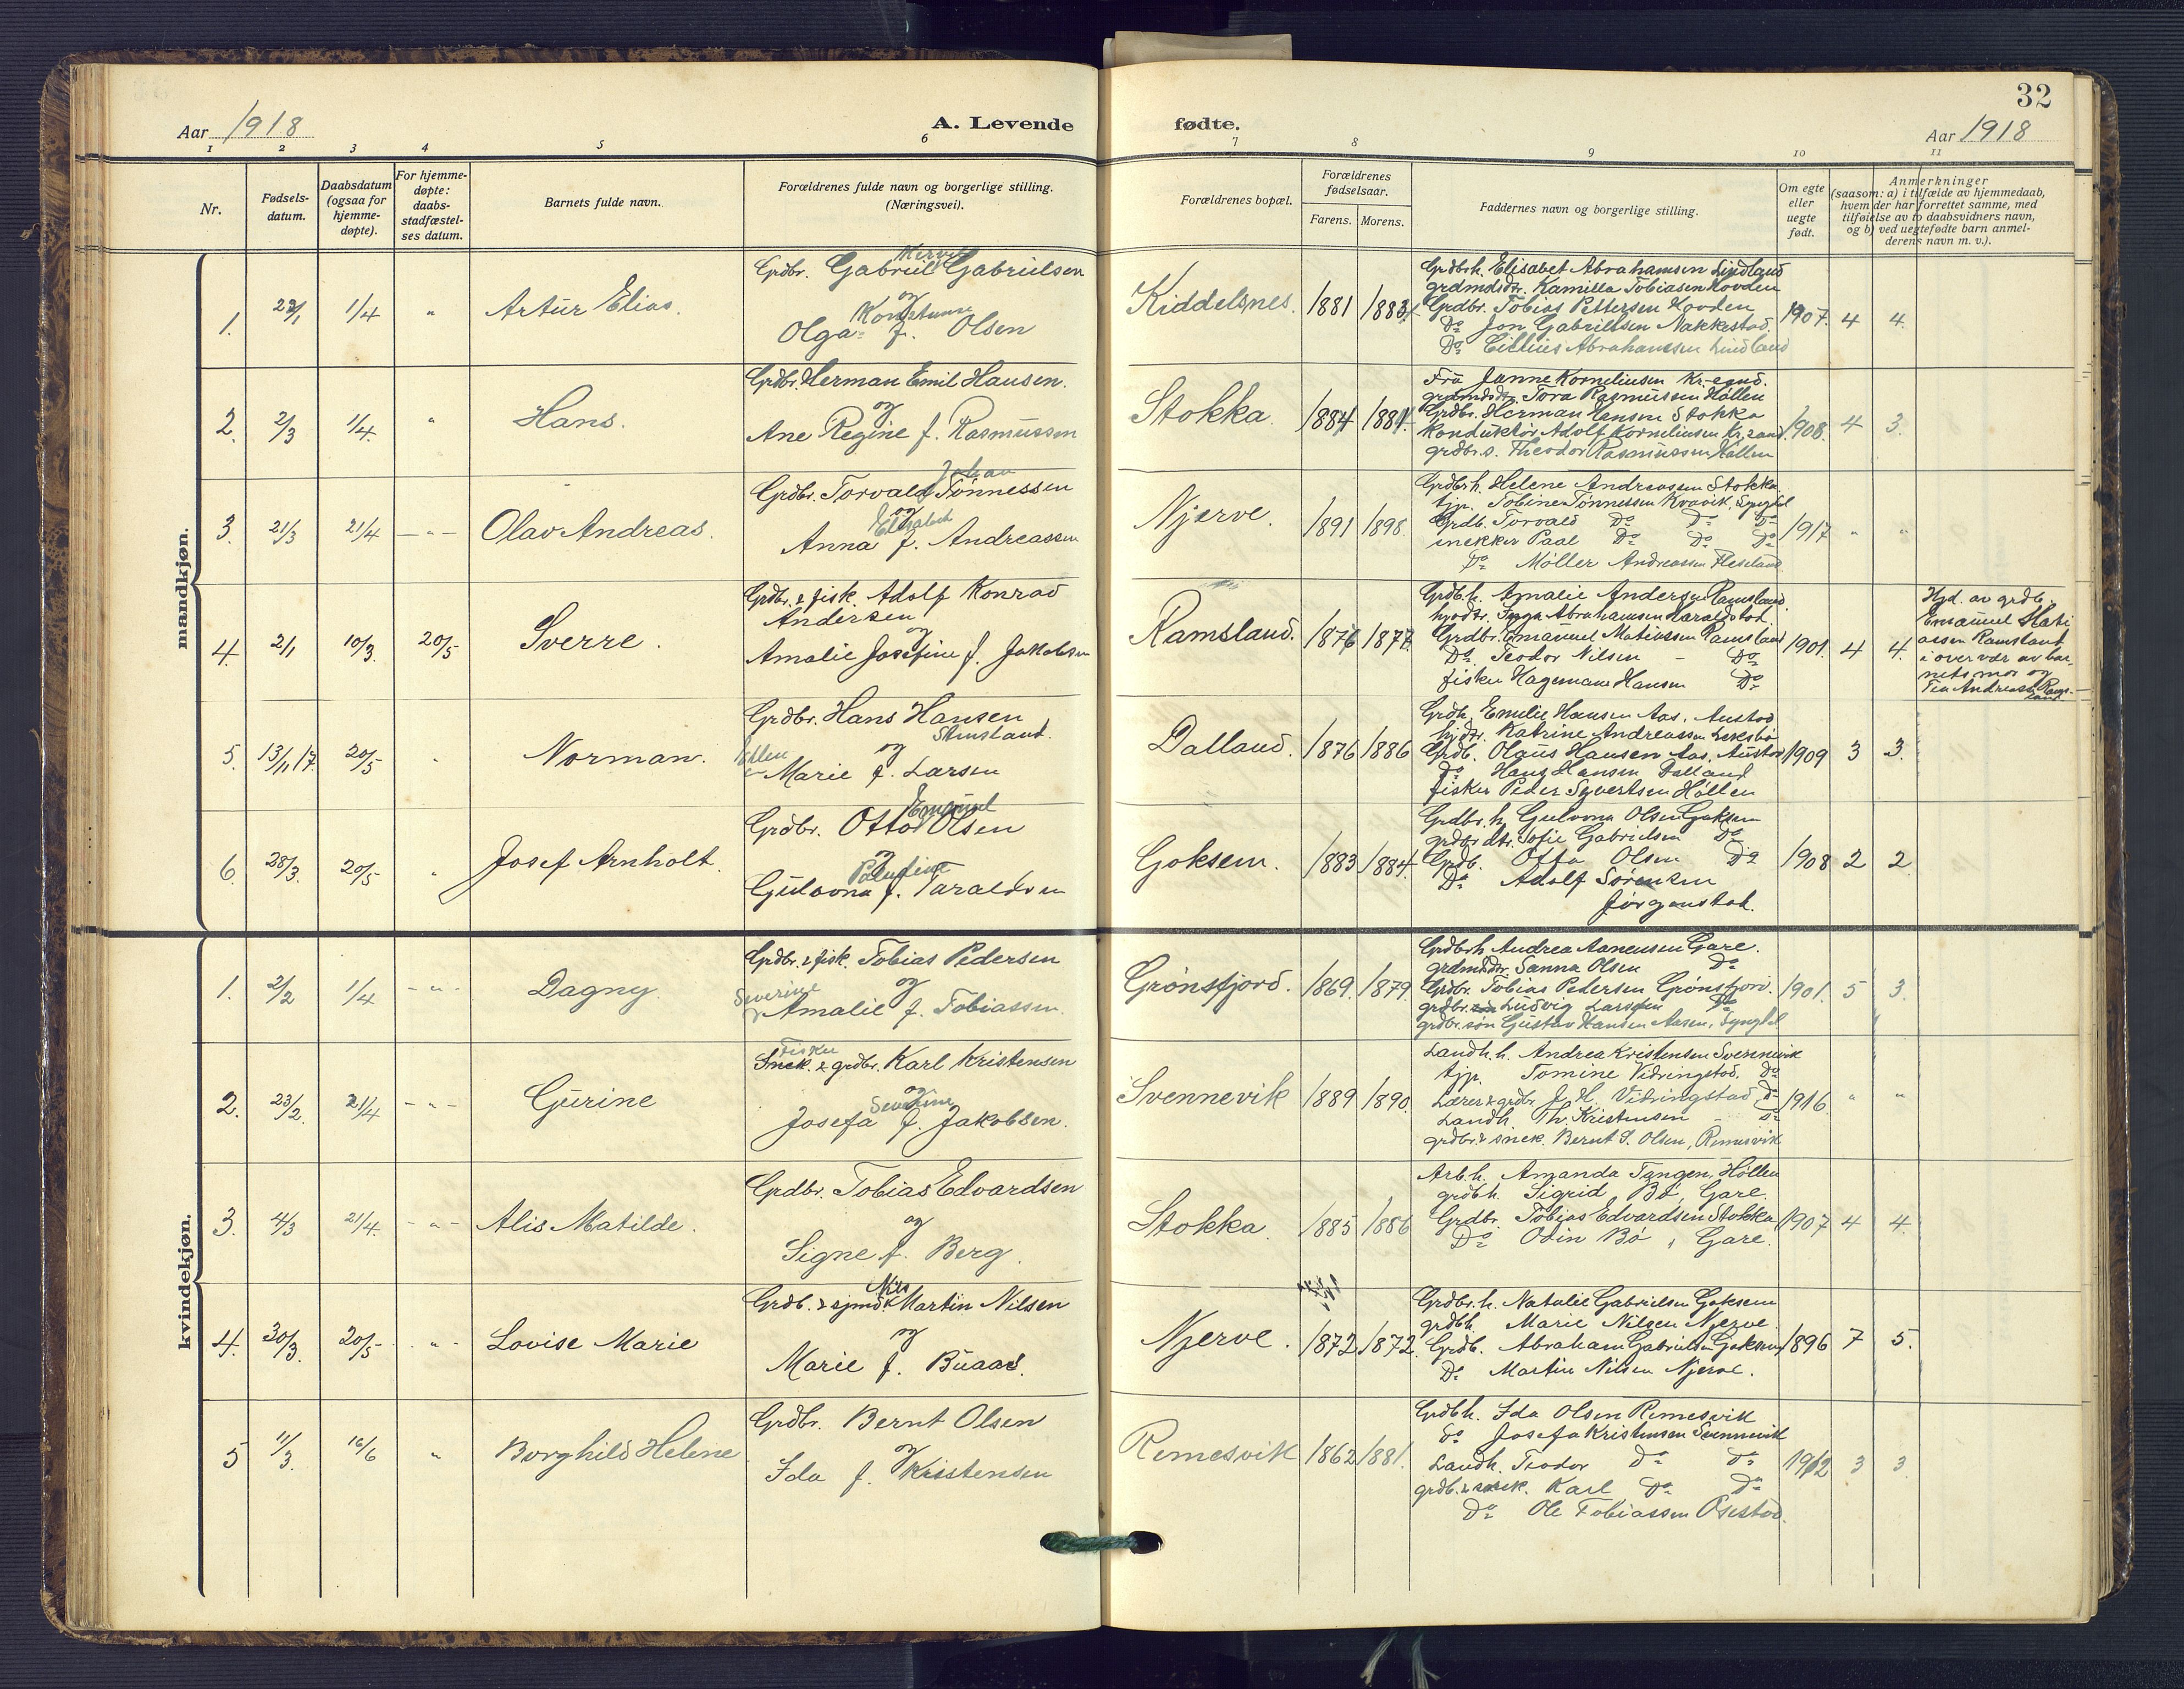 32
Aar 1918 A. Levende fødte. Aar 1918
1 2 3 4 5 6 7 8 9 10 11
Nr.
Fødsels-
datum.
Daabsdatum
(ogsaa for
hjemme-
døpte).
For hjemme-
døpte:
daabs-
stadfæstel-
ses datum.
Barnets fulde navn.
Forældrenes fulde navn og borgerlige stilling.
(Næringsvei).
Forældrenes bopæl.
Forældrenes
fødselsaar.
Farens. Morens.
Faddernes navn og borgerlige stilling.
Om egte
eller
uegte
født.
Anmerkninger
(saasom: a) i tilfælde av hjemmedaab,
hvem der har forrettet samme, med
tilføielse av to daabsvidners navn,
og b) ved uegtefødte barn anmel-
derens navn m. v.).
mandkjøn.
1. 1/4 " Artur Elias.
Grdbr. Gabriel Gabrielsen
og
Olga f. Olsen
Kiddelsnes. 1881 1883
Grdbrh. Elisabet Abrahamsen Lindland
grdmdsdtr. Kamilla Tobiasen Hovden
Grdbr. Tobias Pettersen Hovden
Do Jon Gabrielsen Nakkestad.
Do Abrahamsen Lindland
1907. 4 4.
2. 2/3 1/4. " Hans.
Grdbr. Herman Emil Hansen.
og
Ane Regine f. Rasmussen
Stokka. 1884 1881.
Fru Janne Korneliusen Kr.sand.
grdmdsdtr. Tora Rasmussen Høllen
Grdbr. Herman Hansen Stokka
Konduktør Adolf Korneliusen Kr.sand.
grdbr.s. Theodor Rasmussen Høllen
1908. 4 3.
3. 21/3 21/4 - " - Olav Andreas.
Johan
Grdbr. Torvald Tønnessen
og
Elisabeth
Anna f. Andreassen
Njerve. 1891 1898.
Grdbrh. Helene Andreassen Stokka
tjp. Tobine Tønnessen Kvavik, Lyngdal
Grdb. Torvald Do Do Do
snekker Paal Do Do Do
Do Møller Andreassen Fleseland
1917 " "
4. 2/1 10/3. 20/5 Sverre.
Grdbr. & fisk. Adolf Konrad
Andersen
og
Amalie Josefine f. Jakobsen
Ramsland. 1876 1877.
Grdbr.h. Amalie Andersen Ramsland.
hjdtr. Inga Abrahamsen Haraldstad.
Grdbr. Emanuel Matiassen Ramsland
Do Teodor Nilsen - Do
fisker Hagemann Hansen Do
1901. 4 4.
Hjd. av grdb.
Emanuel Mati
assen Ramsland
i overvær av bar-
nets mor og
Tea Andreassen Rams-
land.
5. 13/11 17. 20/5 " Norman.
Grdbr. Hans Hansen
Stensland.
og
Ellen
Marie f. Larsen
Dalland. 1876 1886
Grdb.h. Emilie Hansen Aas, Austad
hjdtr. Katrine Andreassen
Grdb. Olaus Hansen Aas, Austad
Do Hans Hansen Dalland
fisker Peder Syvertsen Høllen
1909 3 3.
6. 28/3. 20/5 " Josef Arnholt.
Emanuel
Grdbr. Otto Olsen
og
Gulovna f. Taraldsen
Goksem. 1883 1884.
Grdbr.h. Gulovna Olsen Goksem
grdbrdtr. Sofie Gabrielsen Do
Grdb. Otto Olsen Do
Do Adolf Sørensen
Jørgenstad.
1908 2 2.
kvindekjøn.
1. 2/2 1/4 - " - Dagny
Grdbr. & fisk. Tobias Pedersen
og
Severine
Amalie f. Tobiassen.
Grønsfjord. 1869. 1879.
Grdbrh. Andrea Aanensen Gare.
grdmdsdtr. Sanna Olsen Do
Grdbr. Tobias Pedersen Grønsfjord.
grdbr. Ludvig Larssen Do
grdbr.søn Gustav Hansen Aasen, Lyngdal
1901. 5 3.
2. 23/2. 21/4 - " - Gurine
Fisker
Snek. & grdbr. Karl Kristensen
og
Severine
Josefa f. Jakobsen.
Svennevik 1889 1890.
Landh.h. Andrea Kristensen Svennevik
tjp. Tomine Vidringstad. Do
Lærer & grdbr. J. H. Vidringstad Do
Landh. Th. Kristensen Do
grdbr. & snek. Bernt S. Olsen, Remesvik
1916. " "
3. 4/3 21/4. - " - Alis Matilde.
Grdbr. Tobias Edvardsen
og
Signe f. Berg.
Stokka. 1885 1886
Arb.h. Amanda Tangen, Høllen
grdbh. Sigrid Bø, Gare.
Grdbr. Tobias Edvardsen Stokka
Do Odin Bø, Gare.
1907 4 4.
4. 30/3. 20/5 - " - Lovise Marie
Nils
Grdb. & sjmd. Martin Nilsen
og
Marie f. Buaas.
Njerve. 1872 1872.
Grdbr.h. Natalie Gabrielsen Goksem
grdbh. Marie Nilsen Njerve.
Grdb. Abraham Gabrielsen Goksem
Do Martin Nilsen Njerve.
1896 7 5.
5 11/3. 16/6 " Borghild Helene
Grdbr. Bernt Olsen
og
Ida f. Kristensen
Remesvik 1862 1881.
Grdbh. Ida Olsen Remesvik
Do Josefa Kristensen Svennevik
Landh. Teodor Do Do
grdb. & snek. Karl Do Do
Do Ole Tobiassen Osestad.
1912 3 3.